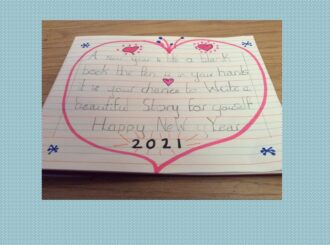 A new year is like a blank
book the Pen is in your hands
It is your chance to Write a
beautiful Story for yourself
Happy New Year
2021